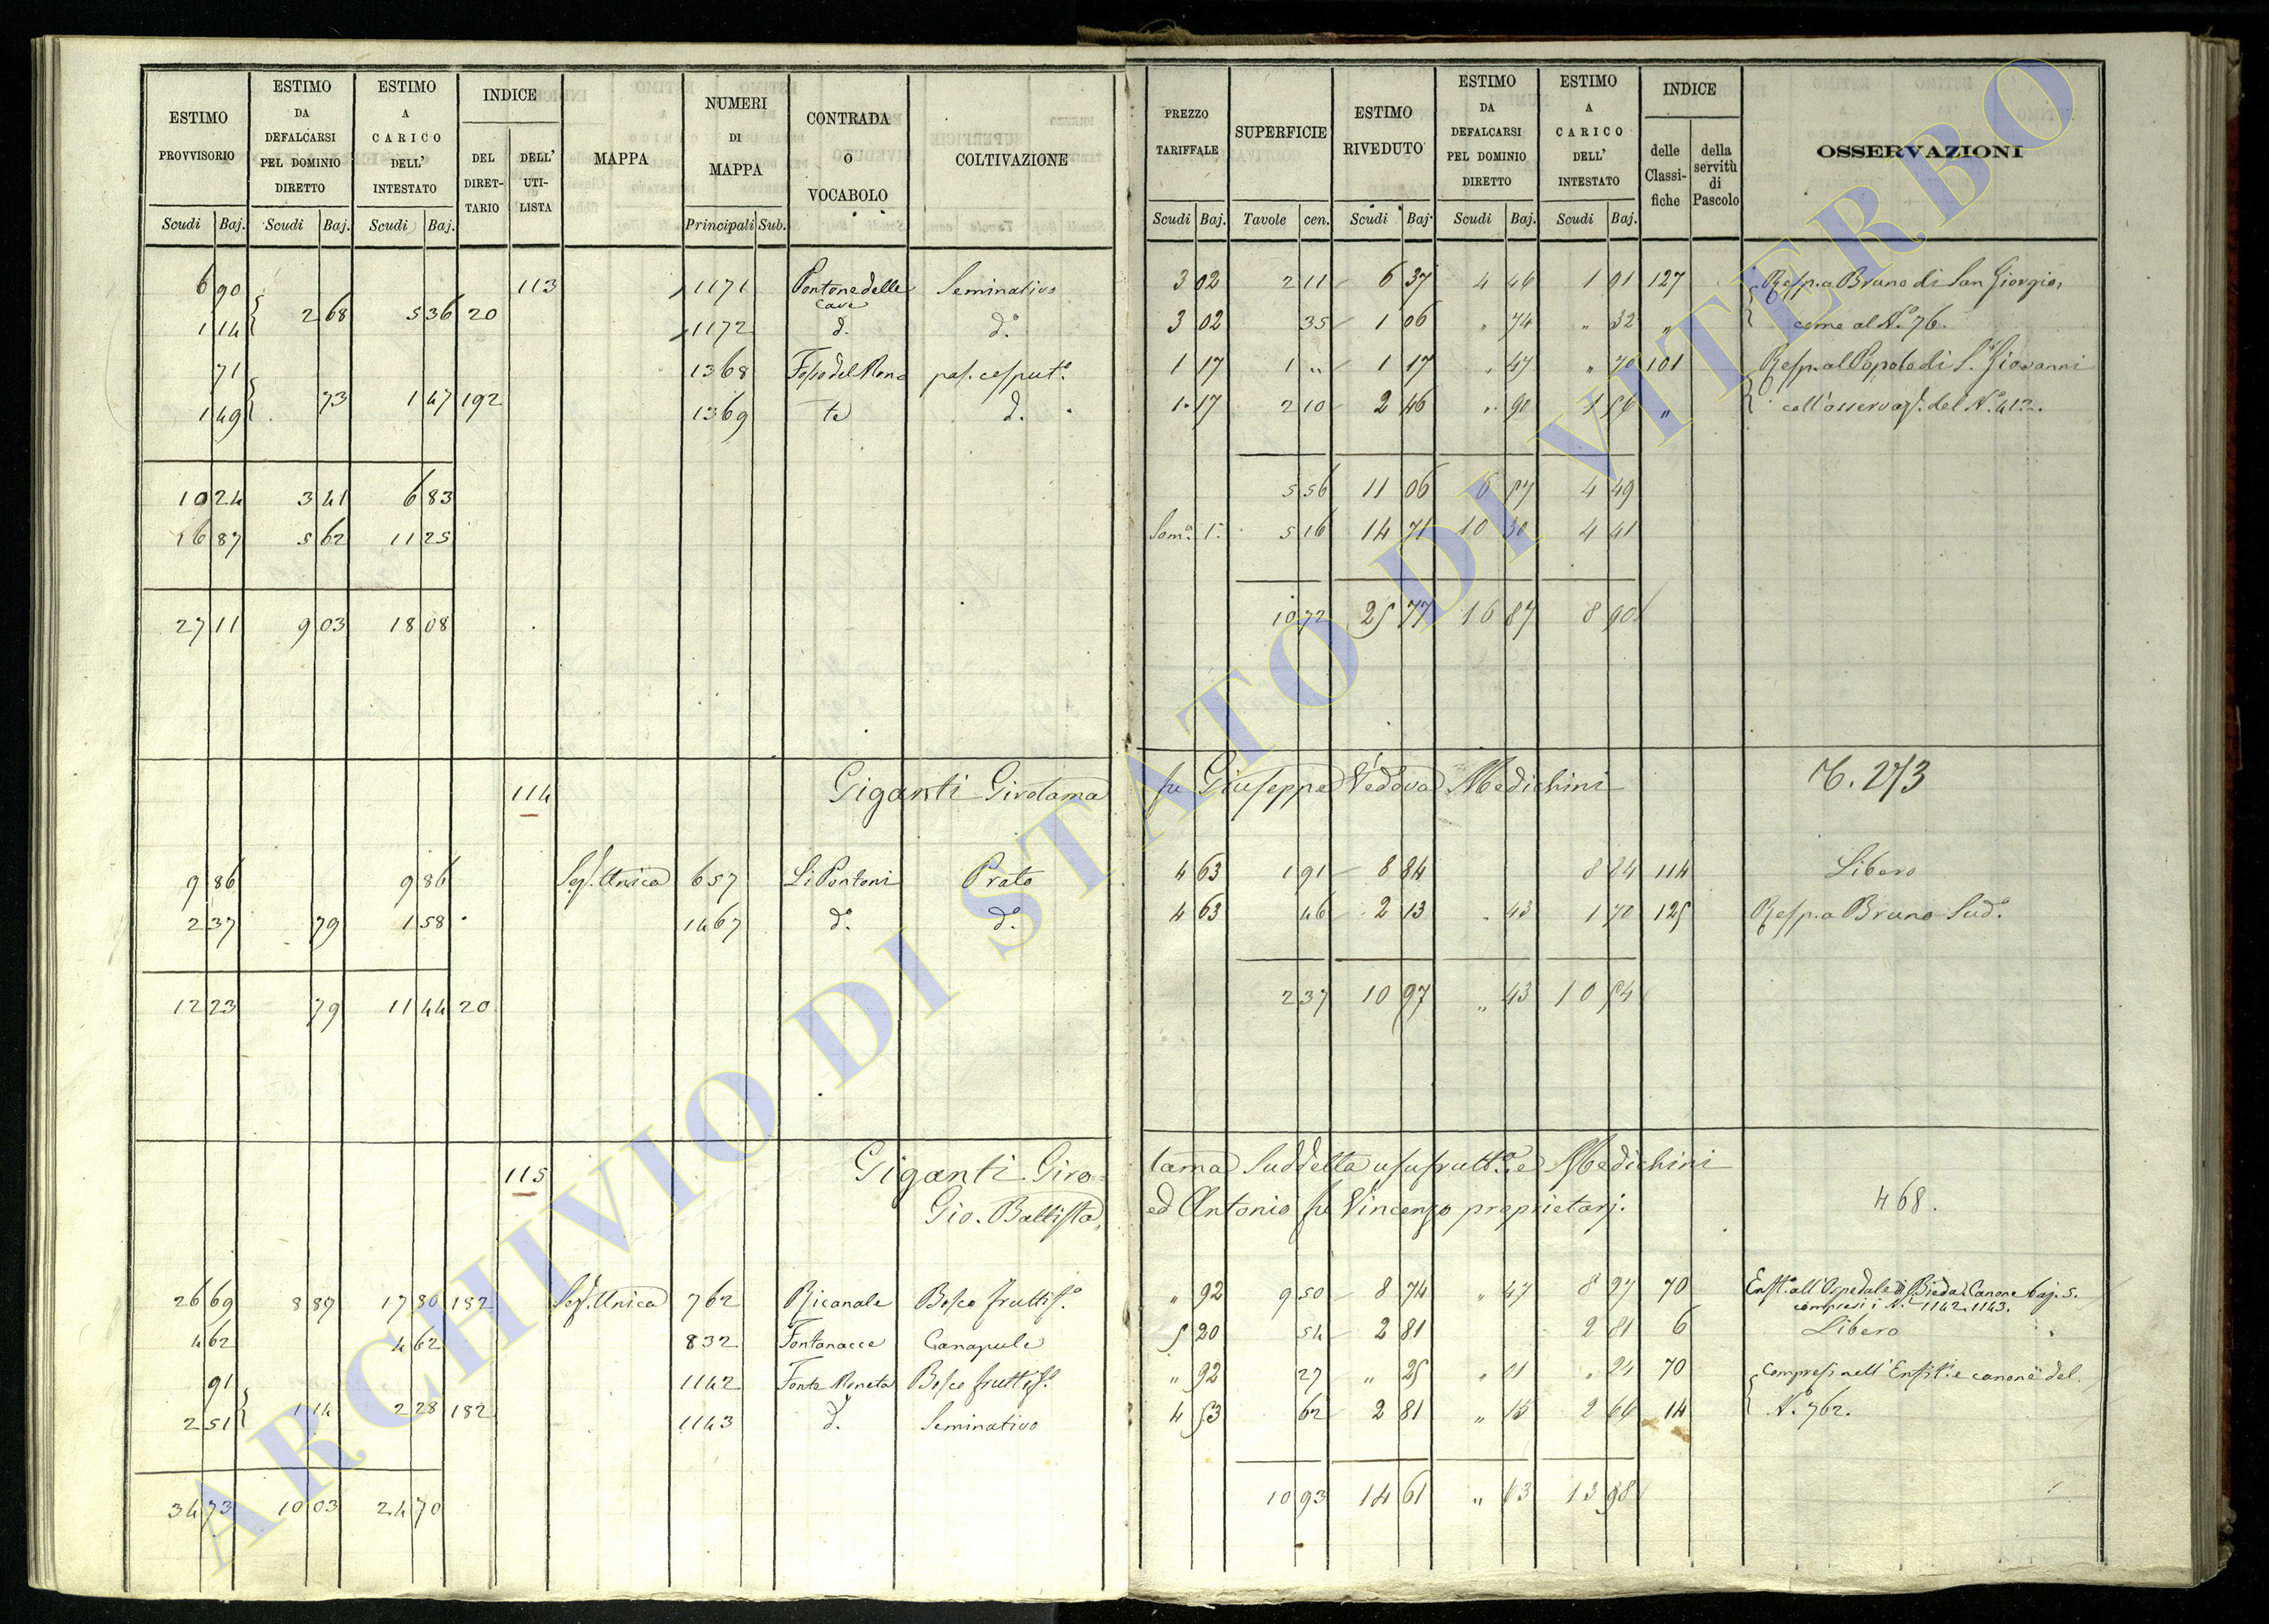 ESTIMO PROVVISORIO | ESTIMO DA DEFALCARSI PEL DOMINIO DIRETTO | ESTIMO A CARICO DELL' INTESTATO | INDICE DEL DIRETTARIO | DELL' UTILISTA | MAPPA | NUMERI DI MAPPA | CONTRADA O VOCABOLO | COLTIVAZIONE | PREZZO TARIFFALE | SUPERFICIE | ESTIMO RIVEDUTO | ESTIMO DA DEFALCARSI PEL DOMINIO DIRETTO | ESTIMO A CARICO DELL' INTESTATO | INDICE delle Classifiche | della servitù di Pascolo | OSSERVAZIONI
Scudi Baj. | Scudi Baj. | Scudi Baj. | Principali Sub. | Scudi Baj. | Tavole cen. | Scudi Baj. | Scudi Baj. | Scudi Baj.
6 90 | 113 | 1171 | Pontone delle Cave | Seminativo | 3 02 | 2 11 | 6 37 | 4 46 | 1 91 | 127 | Resp. a Bruno di San Giorgio,
1 14 | 2 68 | 5 36 | 20 | 1172 | d. | d.º | 3 02 | 35 | 1 06 | " 74 | " 32 | " | come al N.º 76.
71 | 1368 | Fosso del Mon | pas. cesput.º | 1 17 | 1 " | 1 17 | " 47 | " 70 | 101 | Resp. al Popolo di S. Giovanni
1 49 | 73 | 1 47 | 192 | 1369 | te | d. | 1 17 | 2 10 | 2 46 | " 90 | 1 56 | " | coll'osservaz. del N.º 412.
10 24 | 3 41 | 6 83 | 5 56 | 11 06 | 6 57 | 4 49
16 87 | 5 62 | 11 25 | Som.ª 1. | 5 16 | 14 71 | 10 30 | 4 41
27 11 | 9 03 | 18 08 | 10 72 | 25 77 | 16 87 | 8 90
114 | Giganti Girolama fu Giuseppe Vedova Medichini | 273
9 86 | 9 86 | Sez. Unica | 657 | Li Pontoni | Prato | 4 63 | 1 91 | 8 84 | 8 84 | 114 | Libero
2 37 | 79 | 1 58 | 1467 | d.º | d.º | 4 63 | 46 | 2 13 | " 43 | 1 70 | 125 | Resp. a Bruno Sud.º
12 23 | 79 | 11 44 | 20 | 2 37 | 10 97 | " 43 | 10 54
115 | Giganti Giro- lama Suddetta usufrutt.ª, e Medichini
Gio. Battista, ed Antonio fu Vincenzo proprietarj. | 468.
26 69 | 8 89 | 17 80 | 182 | Sez. Unica | 762 | Ricanale | Bosco fruttif.º | " 92 | 9 50 | 8 74 | " 47 | 8 27 | 70 | Enfit.ª all'Ospedale di Bieda Canone baj. 5.
compresi i N.i 1142. 1143.
4 62 | 4 62 | 832 | Fontanacce | Canapule | 5 20 | 54 | 2 81 | 2 81 | 6 | Libero
91 | 1142 | Fonte Moneta | Bosco fruttif.º | " 92 | 27 | " 25 | " 01 | " 24 | 70 | Compresi nell'Enfit.i e canone del
2 51 | 1 14 | 2 28 | 182 | 1143 | d. | Seminativo | 4 53 | 62 | 2 81 | " 15 | 2 66 | 14 | N.º 762.
34 73 | 10 03 | 24 70 | 10 93 | 14 61 | " 63 | 13 98
ARCHIVIO DI STATO DI VITERBO